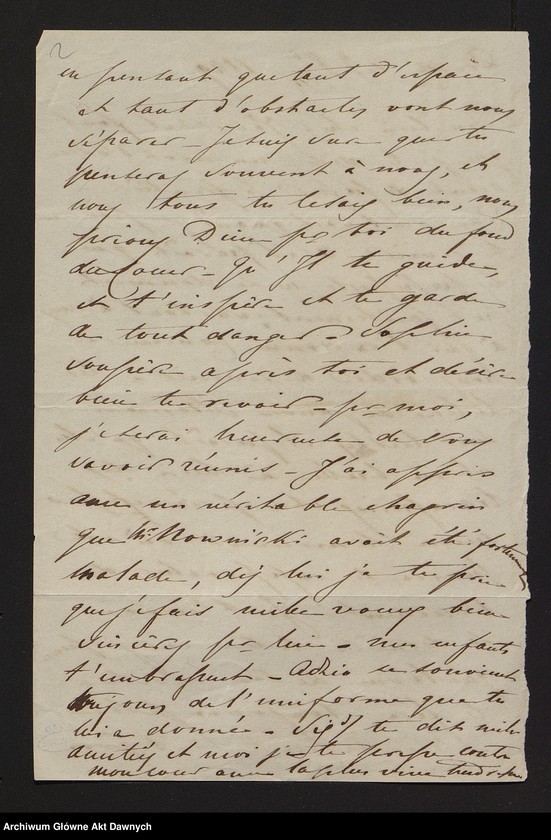 2
en pensant que tant d'espace
et tant d'obstacles vont nous
séparer – Je suis sure que tu
penseras souvent à nous, et
nous tous tu le sais bien, nous
prions Dieu pr toi du fond
du Coeur – Qu'Il te guide,
et t'inspire et te garde
de tout danger – Sophie
soupire après toi et désire
bien te revoir – pr moi,
je serai heureuse de vous
savoir réunis – J'ai appris
avec un véritable chagrin
que Mr Nowniski avait été fortement
malade, dis lui je te prie
que je fais mille voeux bien
sincères pr lui – mes enfants
t'embrassent – se souvient
toujours de l'uniforme que tu
lui a donnée – te dit mille
amitiés et moi je te presse contre
mon coeur avec la plus vive tendresse
Archiwum Główne Akt Dawnych